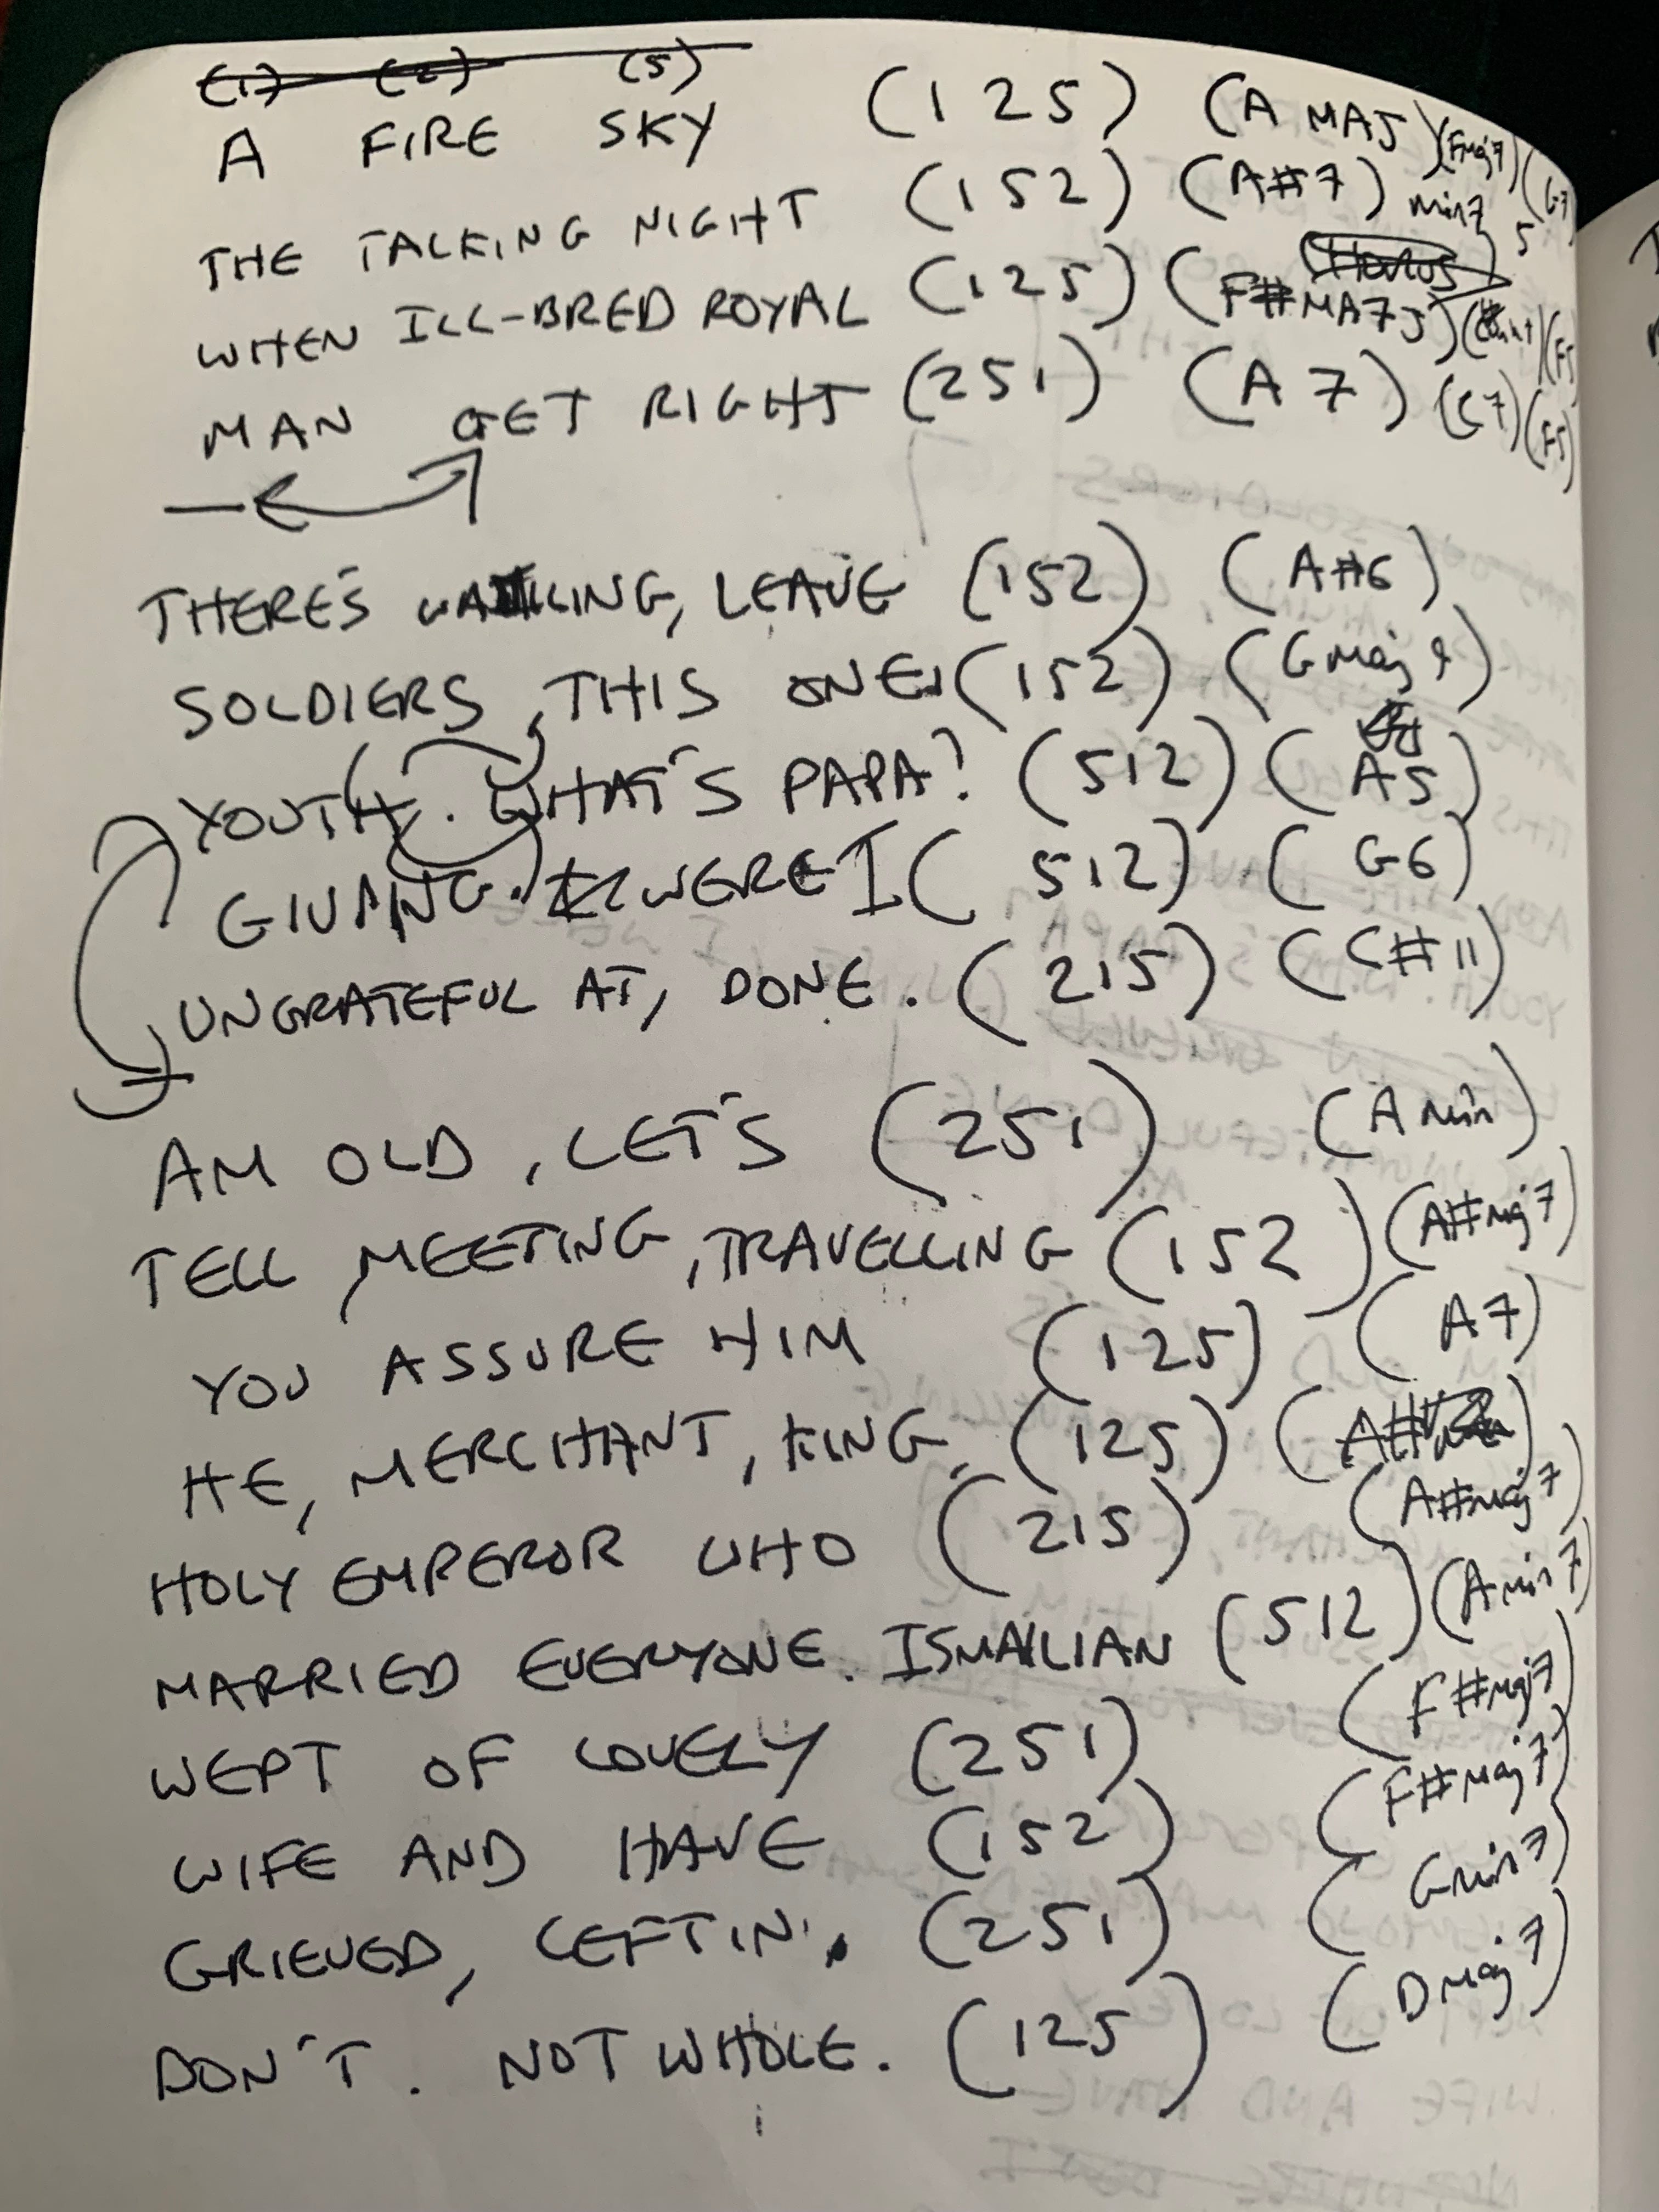 (1) (2) (5)
A FIRE SKY (125) (A MAJ) (Fmaj7) (G7)
THE TALKING NIGHT (152) (A#7) min7 5
WHEN ILL-BRED ROYAL (125) (F#MA7J) (F5)
MAN GET RIGHT (251) (A7) (C7) (F5)
THERE'S LEAVE (152) (A#6)
SOLDIERS, THIS ONE (152) (Gmaj9)
YOUTH. WHAT'S PAPA? (512) (A5)
GIVING. WERE I (512) (G6)
UNGRATEFUL AT, DONE. (215) (C#11)
AM OLD, LET'S (251) (Amin)
TELL, MEETING, TRAVELLING (152) (A#maj7)
YOU ASSURE HIM (125) (A7)
HE, MERCHANT, KING, (125)
HOLY EMPEROR WHO (215) (A#maj7)
MARRIED EVERYONE. ISMAILIAN (512) (Amin7)
WEPT OF LOVELY (251) (F#maj7)
WIFE AND HAVE (152) (F#maj7)
GRIEVED, LEFT IN, (251) (Gmin7)
DON'T. NOT WHOLE. (125) (Dmaj7)